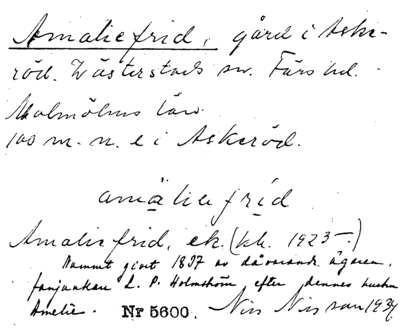 Amaliefrid, gård i Aske-
röd. Västerstads sn. Färs hd.
Malmöhus län.
100 m. n. e i Askeröd.
amäliafrid
Amaliefrid, ek. (kk. 1923–.)
Namnet givet 1837 av dåvarande ägaren,
fanjunkare L. P. Holmström efter dennes hustru
Amelie. Nr 5600. Nils Nilsson 1934